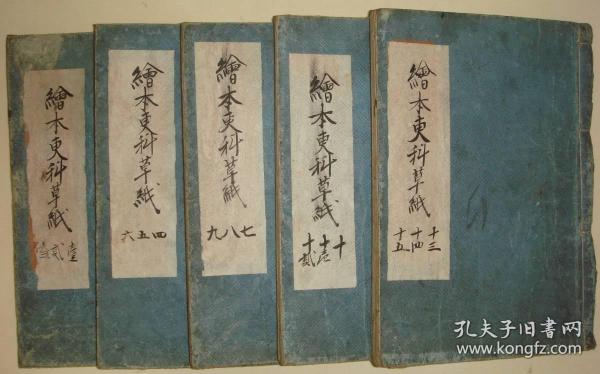 繪本更科草紙
壹
弐
繪本更科草紙
四
五
六
繪本更科草紙
七
八
九
繪本更科草紙
十
十壱
十貳
繪本更科草紙
十三
十四
十五
孔夫子旧书网
www.kongfz.com